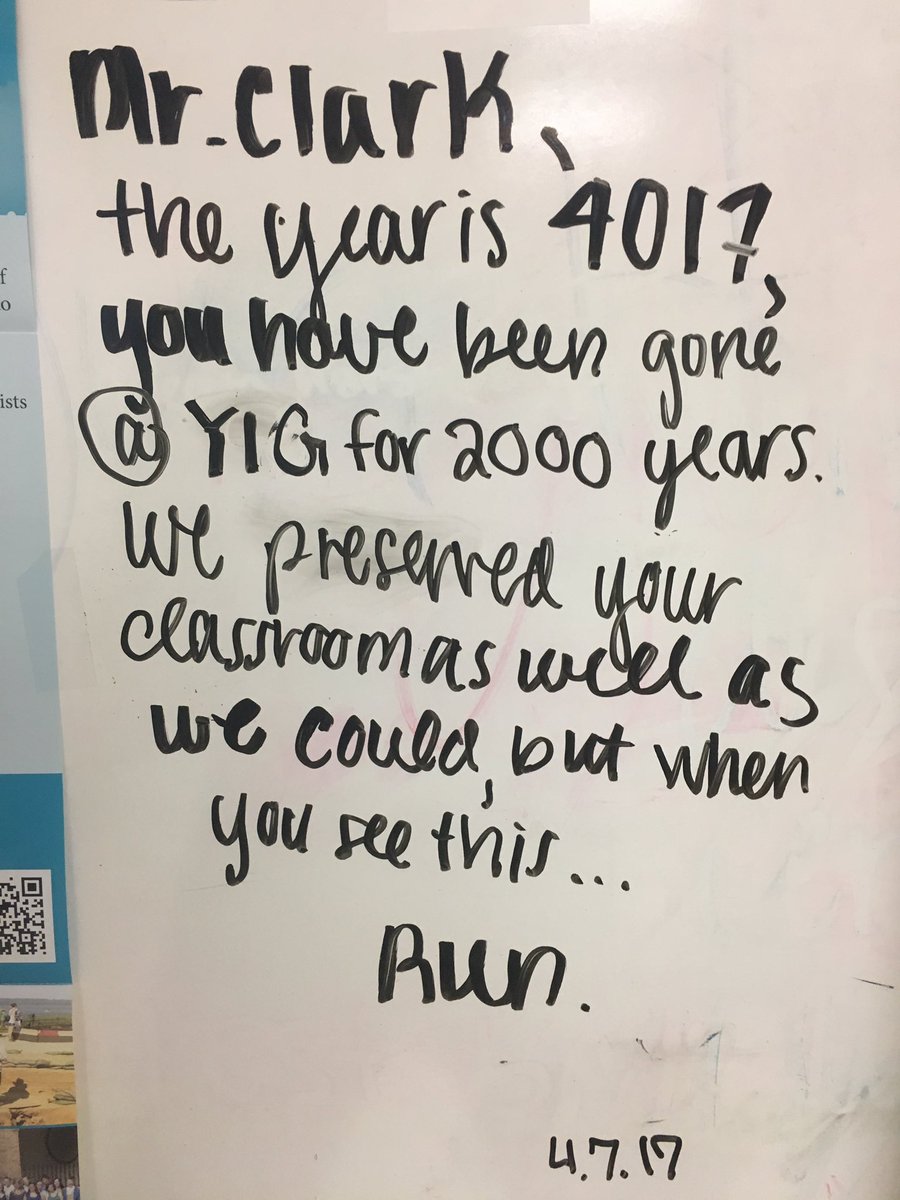 Mr. Clark,
the year is 4017,
you have been gone
@ YIG for 2000 years.
We preserved your
classroom as well as
we could, but when
you see this...
Run.
4.7.17
f
o
ists